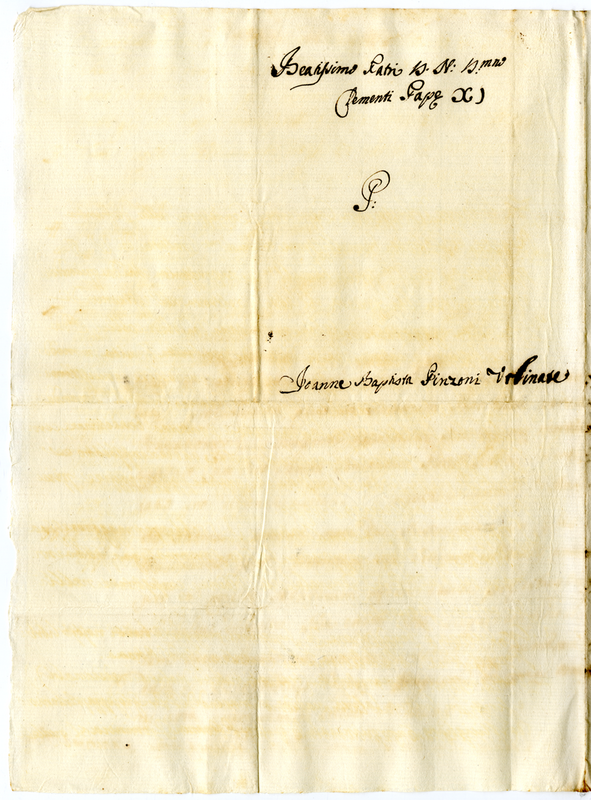 Beatissimo Patri D. N. D.mno
Clementi Papę XI
P:
Joanne Baptista Pinzoni Urbinate